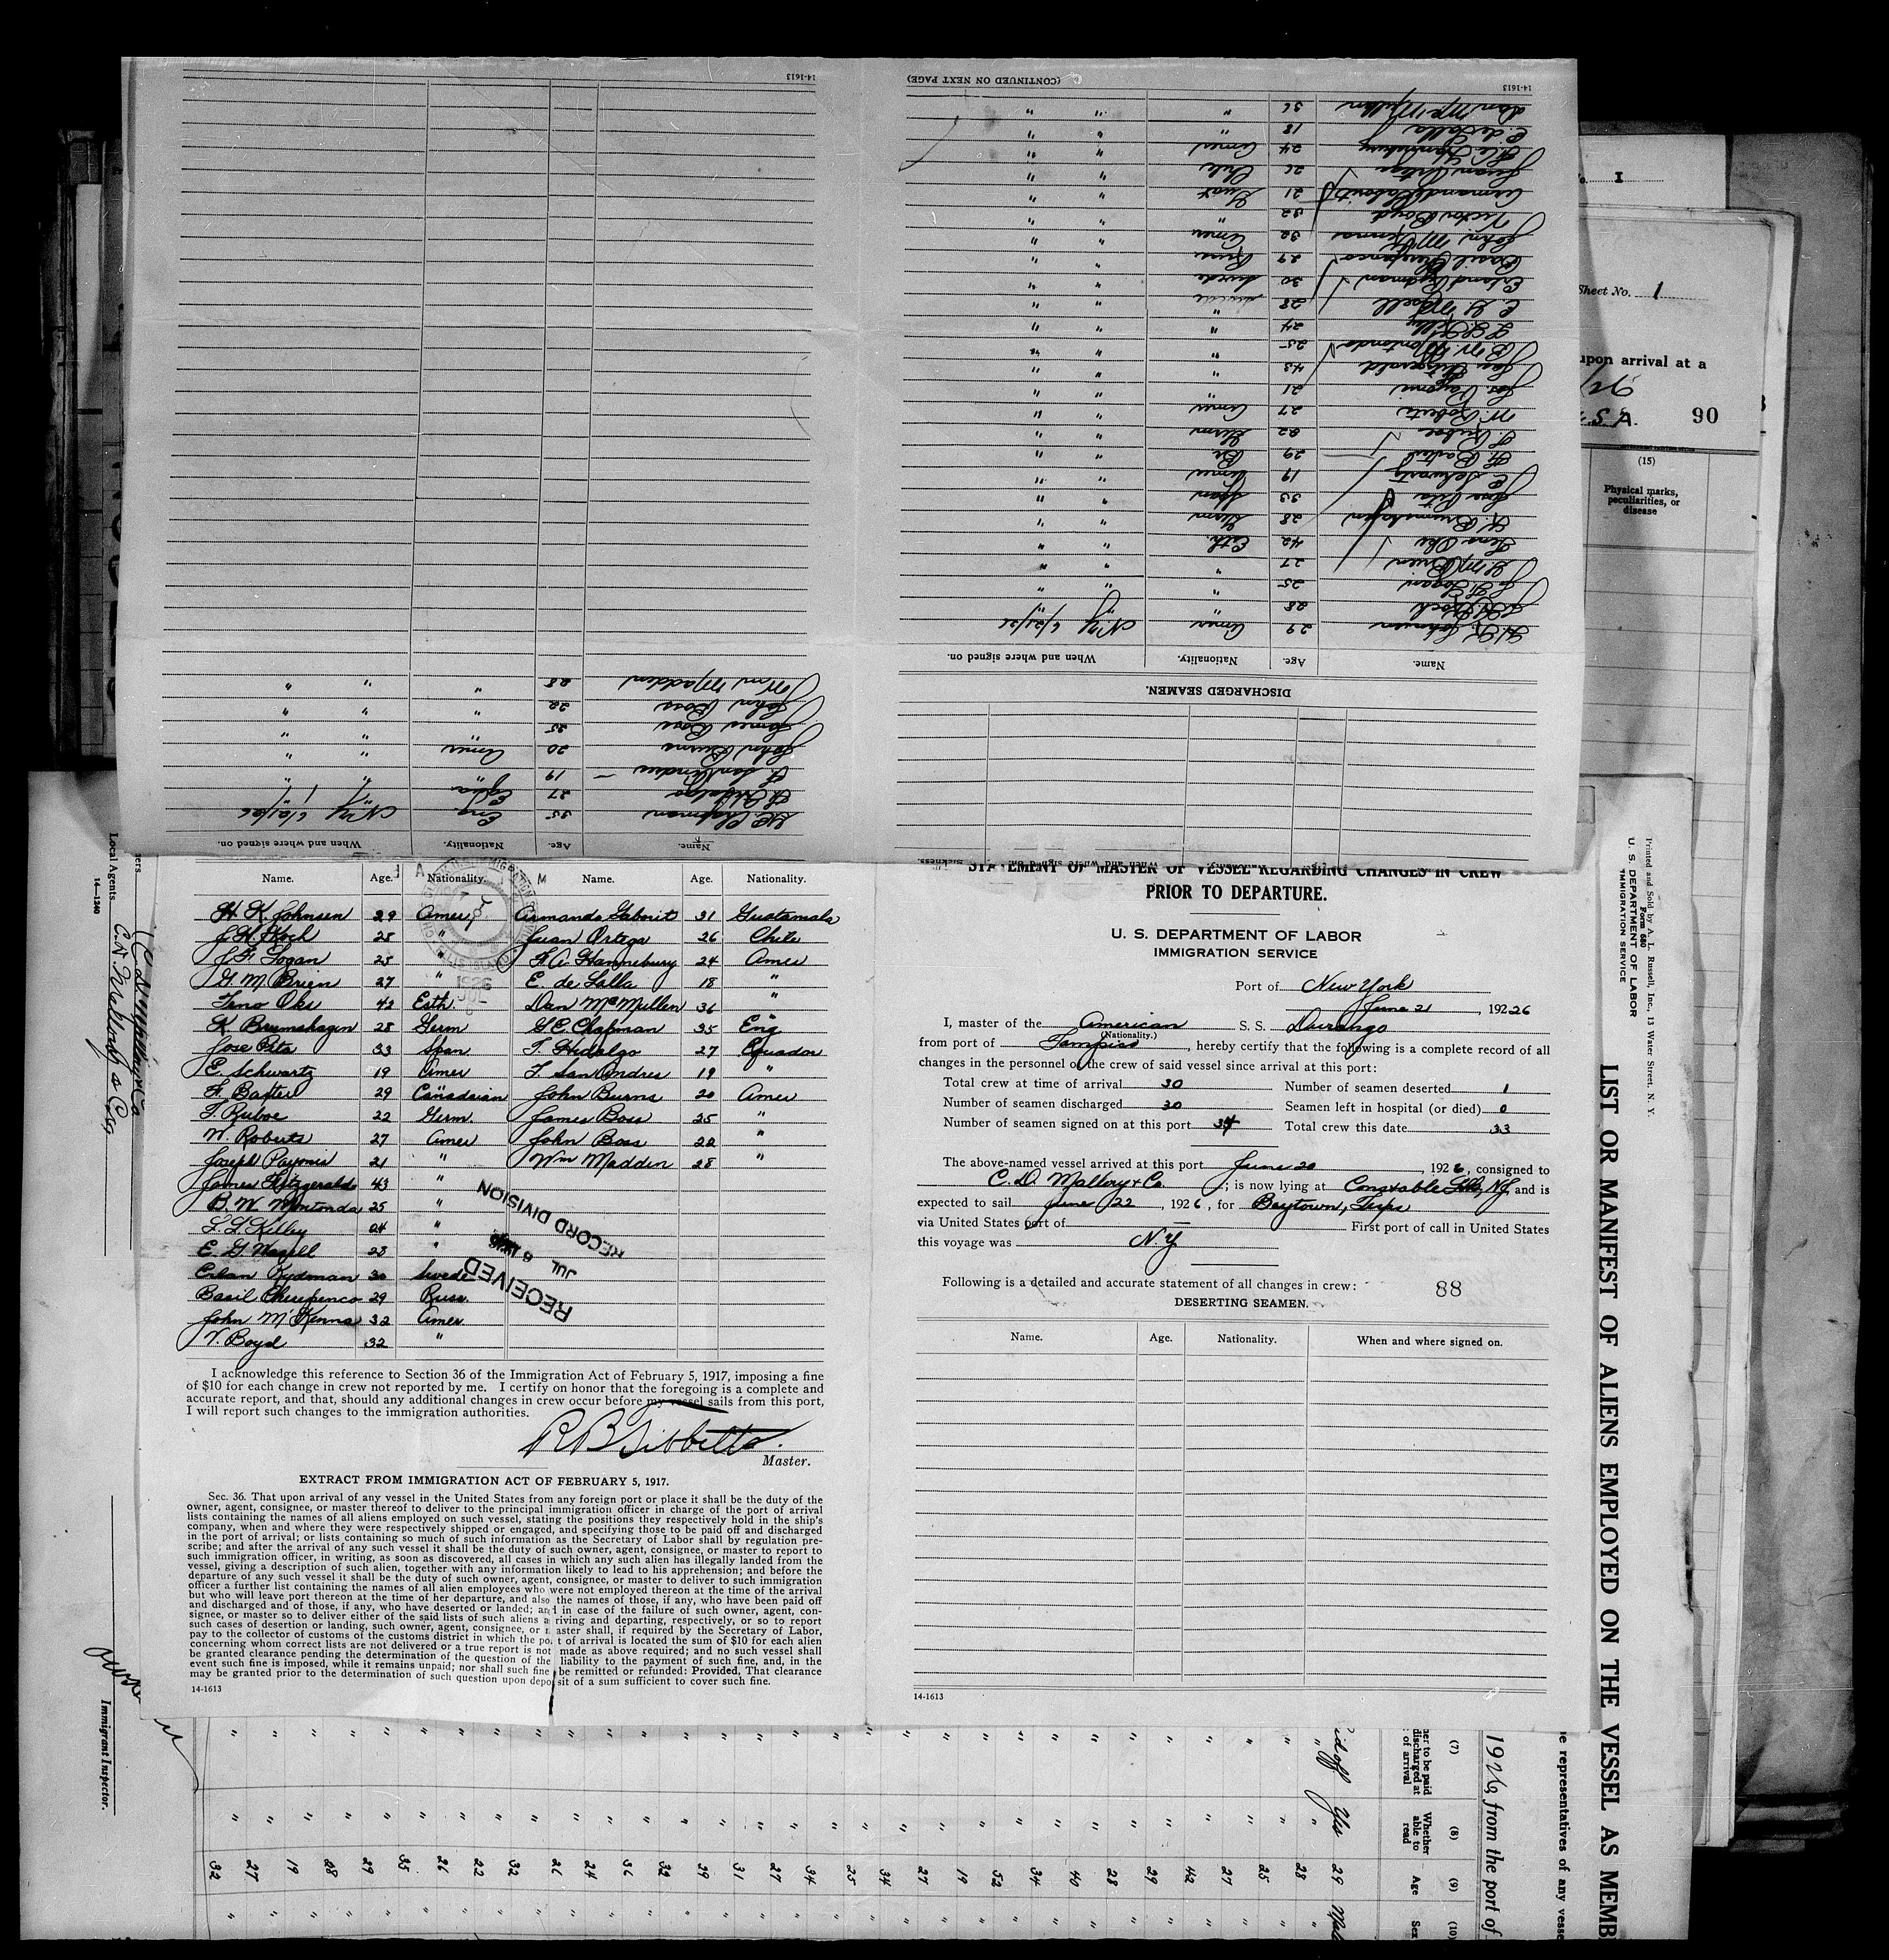 14-1613
(CONTINUED ON NEXT PAGE)
14-1613
DISCHARGED SEAMEN.
Name. Age. Nationality. When and where signed on.
H. K. Johnsen 29 Amer N.Y. 6/21/26
J. H. Koch 28 " " "
J. F. Logan 25 " "
G. M. Brien 27 " " "
Teno Oks 42 Esth. " "
K. Brumshagen 28 Germ " "
Jose Pita 33 Span " "
E. Schwartz 19 Amer " "
F. Baxter 29 " "
T. Kuboe 22 Germ " "
W. Roberts 27 Amer " "
Jos. Payonis 21 " " "
Jas. Fitzgerald 43 " " "
B. W. Montonda 25 " " "
L. L. Kelley 24 " " "
E. G. 28 Swede " "
Erland Kydman 30 Swede " "
Basil Cherepenco 29 Russ " "
John McKenna 32 Amer " "
Victor Boyd 32 " " "
Armando Gaborit 21 Guat " "
Juan Ortega 26 Chile " "
F. A. Hannebury 24 Amer " "
E. de Lalla 18 " " "
Dan McMullen 36 " " "
Name. Age. Nationality. When and where signed on.
G. E. Chapman 35 Eng N.Y. 6/21/26
T. Hidalgo 27 " "
T. San Andres 19 " " "
John Burns 20 Amer " "
James Boss 25 " " "
John Boss 22 " " "
Wm Madden 28 " " "
Name. Age. Nationality. Name. Age. Nationality.
H. K. Johnsen 29 Amer Armando Gaborit 31 Guatamala
J. H. Koch 28 " Juan Ortega 26 Chile
J. F. Logan 25 " F. A. Hannebury 24 Amer
G. M. Brien 27 " E. de Lalla 18 "
Teno Oks 42 Esth. Dan McMullen 36 "
K. Brumshagen 28 Germ G. E. Chapman 35 Eng
Jose Pita 33 Span T. Hidalgo 27 Equador
E. Schwartz 19 Amer T. San Andres 19 "
F. Baxter 29 Canadaian John Burns 20 Amer
T. Kuboe 22 Germ. James Boss 25 "
W. Roberts 27 Amer John Boss 22 "
Joseph Payonis 21 " Wm Madden 28 "
James Fitzgerald 43 "
B. W. Montonda 25 "
L. L. Kelley 24 "
E. G. 28 "
Erlan Kydman 30 Swede
Basil Cherepenco 29 Russ.
John McKenna 32 Amer
V. Boyd 32 "
RECEIVED
JUL 6 1926
RECORD DIVISION
I acknowledge this reference to Section 36 of the Immigration Act of February 5, 1917, imposing a fine
of $10 for each change in crew not reported by me. I certify on honor that the foregoing is a complete and
accurate report, and that, should any additional changes in crew occur before my vessel sails from this port,
I will report such changes to the immigration authorities.
R B Tibbetts.
Master.
EXTRACT FROM IMMIGRATION ACT OF FEBRUARY 5, 1917.
Sec. 36. That upon arrival of any vessel in the United States from any foreign port or place it shall be the duty of the
owner, agent, consignee, or master thereof to deliver to the principal immigration officer in charge of the port of arrival
lists containing the names of all aliens employed on such vessel, stating the positions they respectively hold in the ship's
company, when and where they were respectively shipped or engaged, and specifying those to be paid off and discharged
in the port of arrival; or lists containing so much of such information as the Secretary of Labor shall by regulation pre-
scribe; and after the arrival of any such vessel it shall be the duty of such owner, agent, consignee, or master to report to
such immigration officer, in writing, as soon as discovered, all cases in which any such alien has illegally landed from the
vessel, giving a description of such alien, together with any information likely to lead to his apprehension; and before the
departure of any such vessel it shall be the duty of such owner, agent, consignee, or master to deliver to such immigration
officer a further list containing the names of all alien employees who were not employed thereon at the time of the arrival
but who will leave port thereon at the time of her departure, and also the names of those, if any, who have been paid off
and discharged and of those, if any, who have deserted or landed; and in case of the failure of such owner, agent, con-
signee, or master so to deliver either of the said lists of such aliens arriving and departing, respectively, or so to report
such cases of desertion or landing, such owner, agent, consignee, or master shall, if required by the Secretary of Labor,
pay to the collector of customs of the customs district in which the port of arrival is located the sum of $10 for each alien
concerning whom correct lists are not delivered or a true report is not made as above required; and no such vessel shall
be granted clearance pending the determination of the question of the liability to the payment of such fine, and, in the
event such fine is imposed, while it remains unpaid; nor shall such fine be remitted or refunded: Provided, That clearance
may be granted prior to the determination of such question upon deposit of a sum sufficient to cover such fine.
14-1613
STATEMENT OF MASTER OF VESSEL REGARDING CHANGES IN CREW
PRIOR TO DEPARTURE.
U. S. DEPARTMENT OF LABOR
IMMIGRATION SERVICE
Port of New York
June 21, 192 26
I, master of the American S. S. Durango
(Nationality.)
from port of Tampico, hereby certify that the following is a complete record of all
changes in the personnel of the crew of said vessel since arrival at this port:
Total crew at time of arrival 30 Number of seamen deserted 1
Number of seamen discharged 30 Seamen left in hospital (or died) 0
Number of seamen signed on at this port 34 Total crew this date 33
The above-named vessel arrived at this port June 20, 1926, consigned to
C. D. Mallory & Co.; is now lying at Constable NJ and is
expected to sail June 22, 1926, for Baytown, Texas
via United States port of — First port of call in United States
this voyage was N.Y
Following is a detailed and accurate statement of all changes in crew: 88
DESERTING SEAMEN.
Name. Age. Nationality. When and where signed on.
14-1613
No. I
Sheet No. 1
upon arrival at a
S.A. 90
(15)
Physical marks,
peculiarities, or
disease
Printed and Sold by A. L. Russell, Inc., 13 Water Street, N. Y.
Form 680
U. S. DEPARTMENT OF LABOR
IMMIGRATION SERVICE
LIST OR MANIFEST OF ALIENS EMPLOYED ON THE VESSEL AS MEMB
e representatives of any vesse
1926, from the port of
(7) (8) (9) (10)
her to be paid
discharged at
of arrival
Whether
able to
read
Age
Sex
Yes 29
28 25 27 42 29 28 40 34 52 19 27 34 25 34 27 31 29 32 36 24 26 32 22 26 35 29 28 19 27 32
Local Agents
14-1240
C. D. Mallory & Co
Immigrant Inspector.